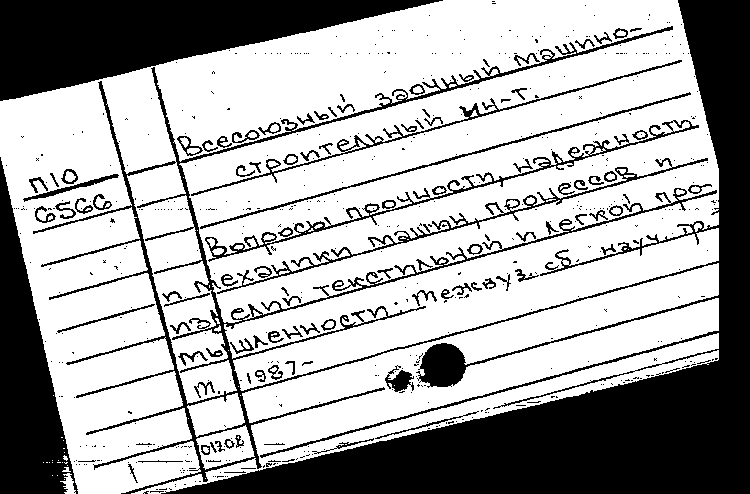 Всесоюзный заочный машино-
строительный ин-т.
П10
6566
Вопросы прочности, надежности
и механики машин, процессов и
изделий текстильной и легкой про-
мышленности: Межвуз. сб. науч. тр.
М., 1987-
01208